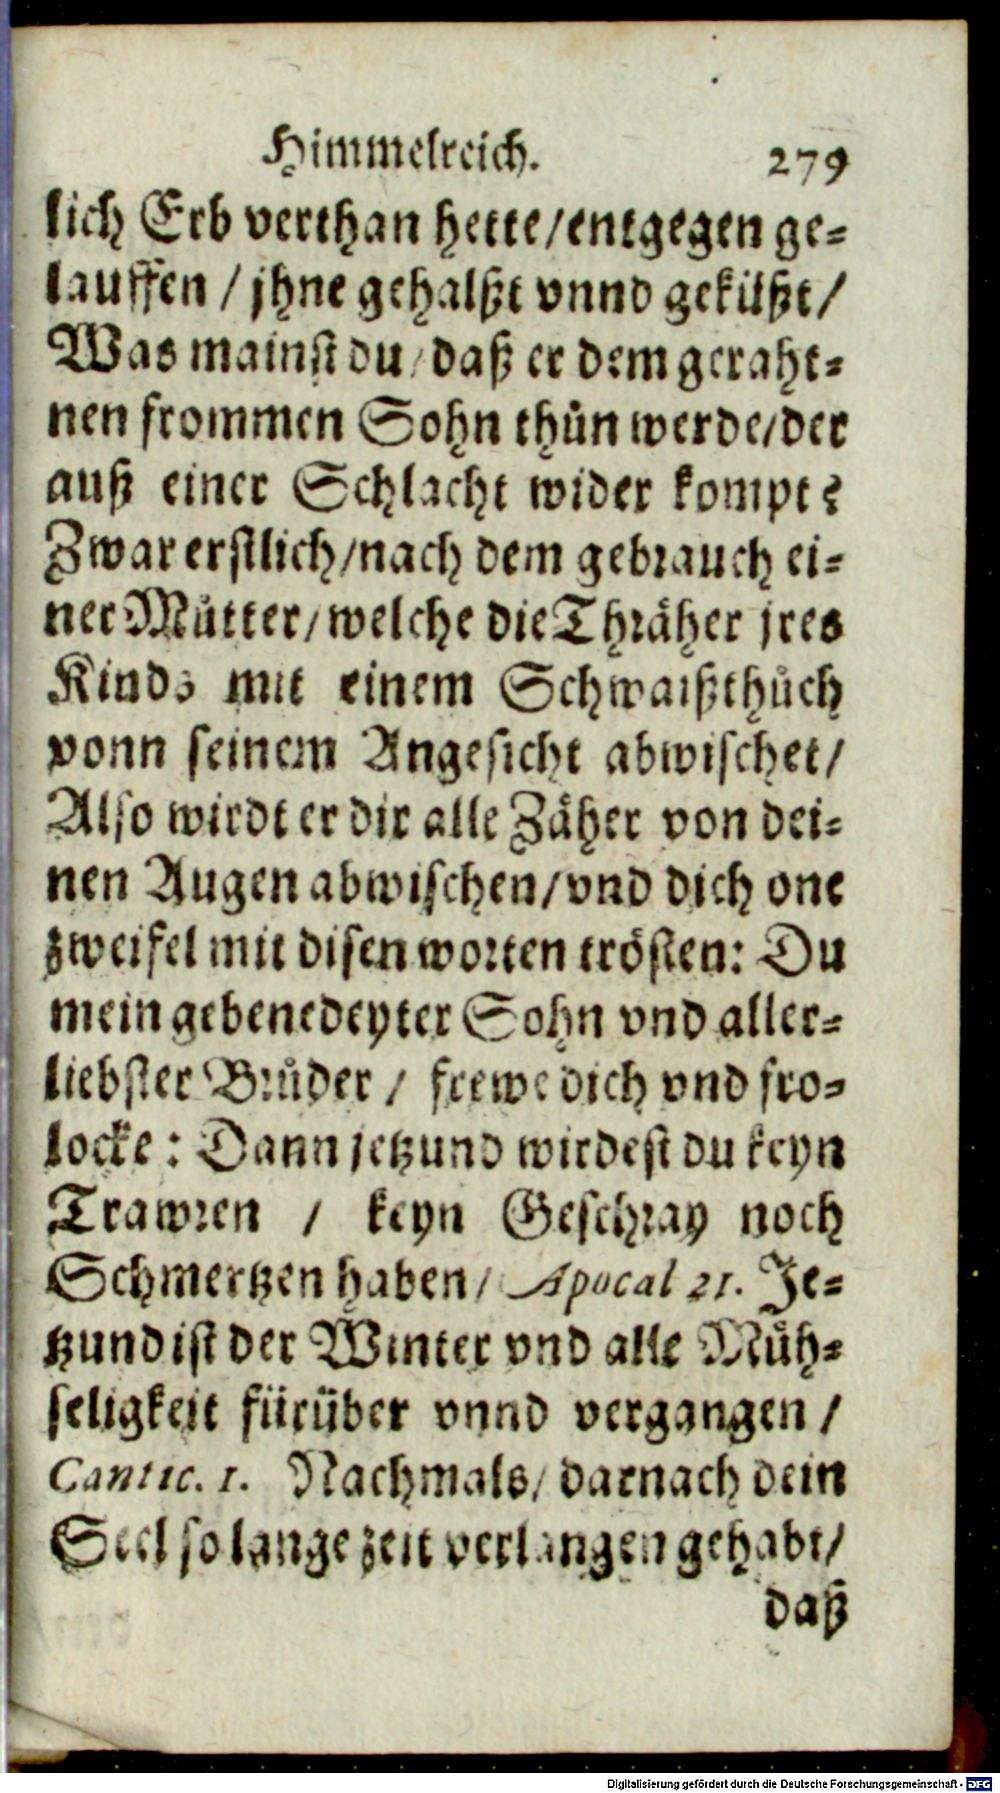 Himmelreich. 279
lich Erb verthan hette/entgegen ge-
lauffen / jhne gehalßt vnnd geküßt/
Was mainst du/ daß er dem geraht-
nen frommen Sohn thůn werde/der
auß einer Schlacht wider kompt?
Zwar erstlich/nach dem gebrauch ei-
ner Můtter/welche die Thräher jres
Kinds mit einem Schwaißthůch
vonn seinem Angesicht abwischet/
Also wirdt er dir alle Zäher von dei-
nen Augen abwischen/vnd dich one
zweifel mit disen worten trösten: Du
mein gebenedeyter Sohn vnd aller-
liebster Brůder / frewe dich vnd fro-
locke: Dann jetzund wirdest du keyn
Trawren / keyn Geschray noch
Schmertzen haben/ Apocal 21. Je-
tzund ist der Winter vnd alle Müh-
seligkeit fürüber vnnd vergangen /
Cantic. 1. Nachmals/ darnach dein
Seel so lange zeit verlangen gehabt/
daß
Digitalisierung gefördert durch die Deutsche Forschungsgemeinschaft - DFG